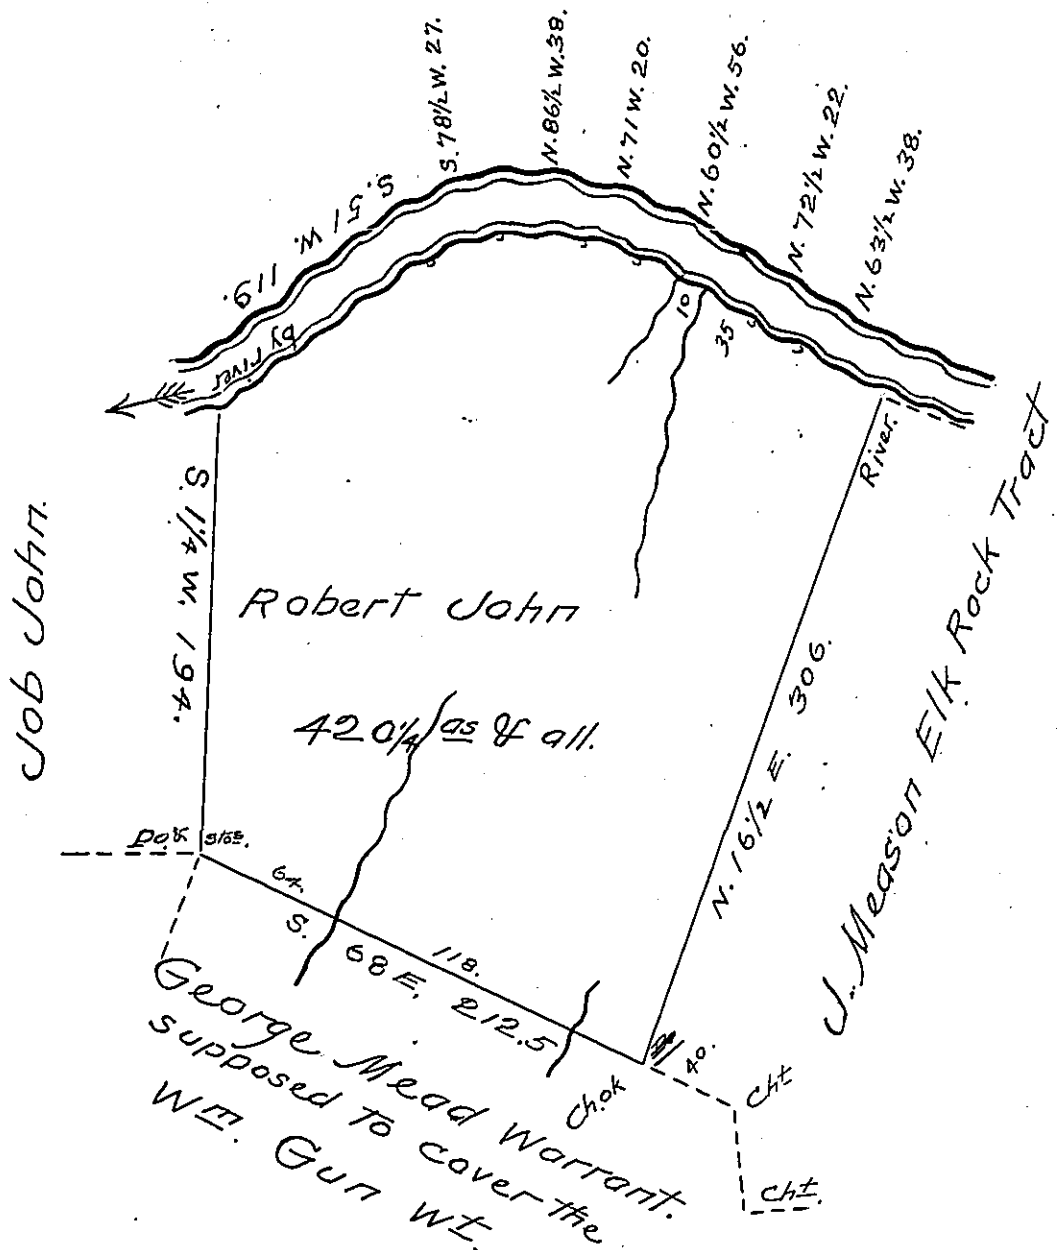 S. 78½ W. 27.
N. 86½ W. 38.
N. 71 W. 20.
N. 60½ W. 56.
N. 72½ W. 22.
N. 63½ W. 38.
S. 51 W. 119.
by river
10
35
River.
S. 1¼ W. 194.
Job John.
Robert John
420¼ as & all.
N. 16½ E. 306.
J. Meason Elk Rock Tract
Do. &
64.
118.
S. 68 E. 212.5
40.
Ch.ok
Cht
Cht.
George Mead Warrant.
supposed To cover the
Wm. Gun Wt.